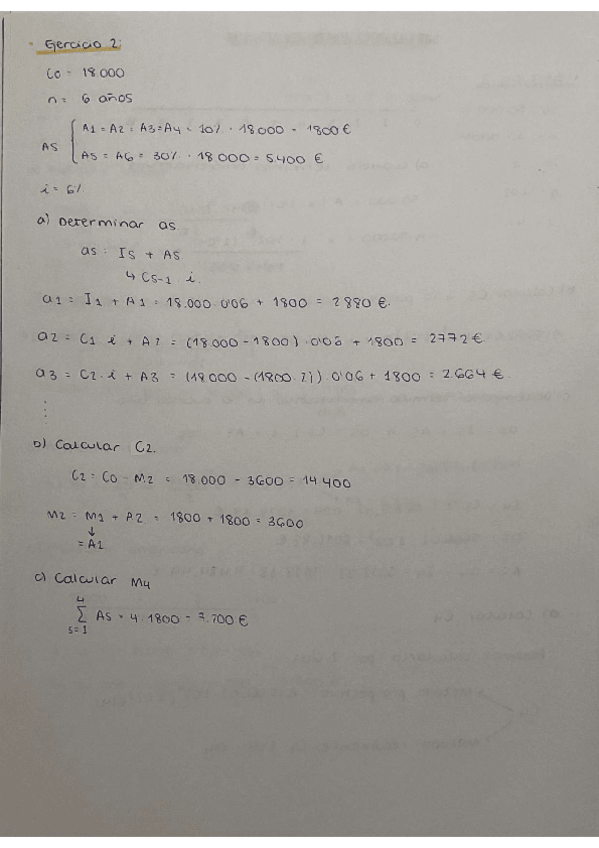 · Ejercicio 2:
C0 = 18.000
n = 6 años
AS { A1 = A2 = A3 = A4 = 10% · 18 000 = 1800 €
A5 = A6 = 30% · 18 000 = 5.400 €
i = 6%
a) Determinar as
as = Is + AS
↳ Cs-1 · i.
a1 = I1 + A1 = 18.000 · 0'06 + 1800 = 2880 €.
a2 = C1 · i + A2 = (18.000 - 1800) · 0'06 + 1800 = 2772 €.
a3 = C2 · i + A3 = (18000 - (1800 · 2)) · 0'06 + 1800 = 2.664 €.
⋮
b) Calcular C2.
C2 = C0 - M2 = 18.000 - 3600 = 14 400
M2 = M1 + A2 = 1800 + 1800 = 3600
↓
= A1
c) Calcular M4
4
∑ AS = 4 · 1800 = 7.700 €
s=1